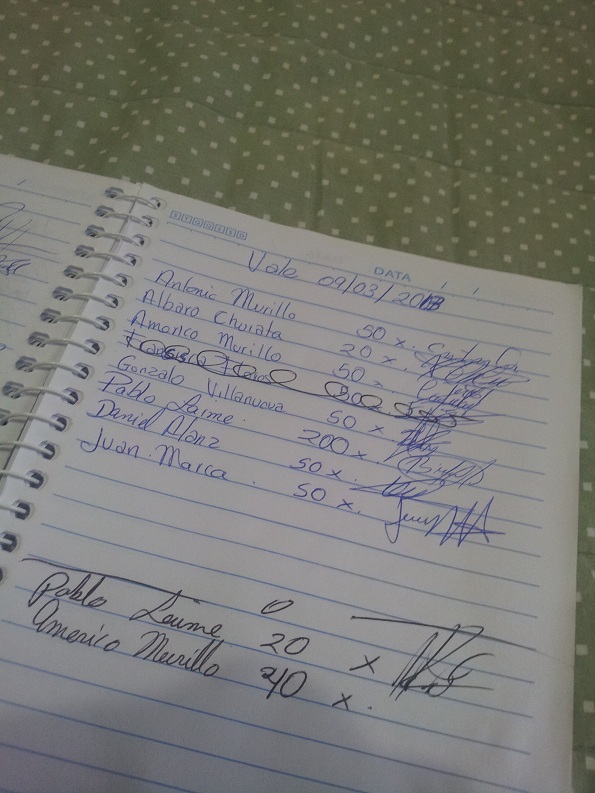 S T Q Q S S D
DATA / /
Vale 09/03/2013
Antonio Murillo 50 x.
Albaro Churata 20 x.
Americo Murillo 50 x.
Gonzalo Villanueva 50 x
Pablo Laime. 200 x.
Daniel Alanz 50 x.
Juan Marca . 50 x.
Pablo Laime 20 x
Americo Murillo 40 x.